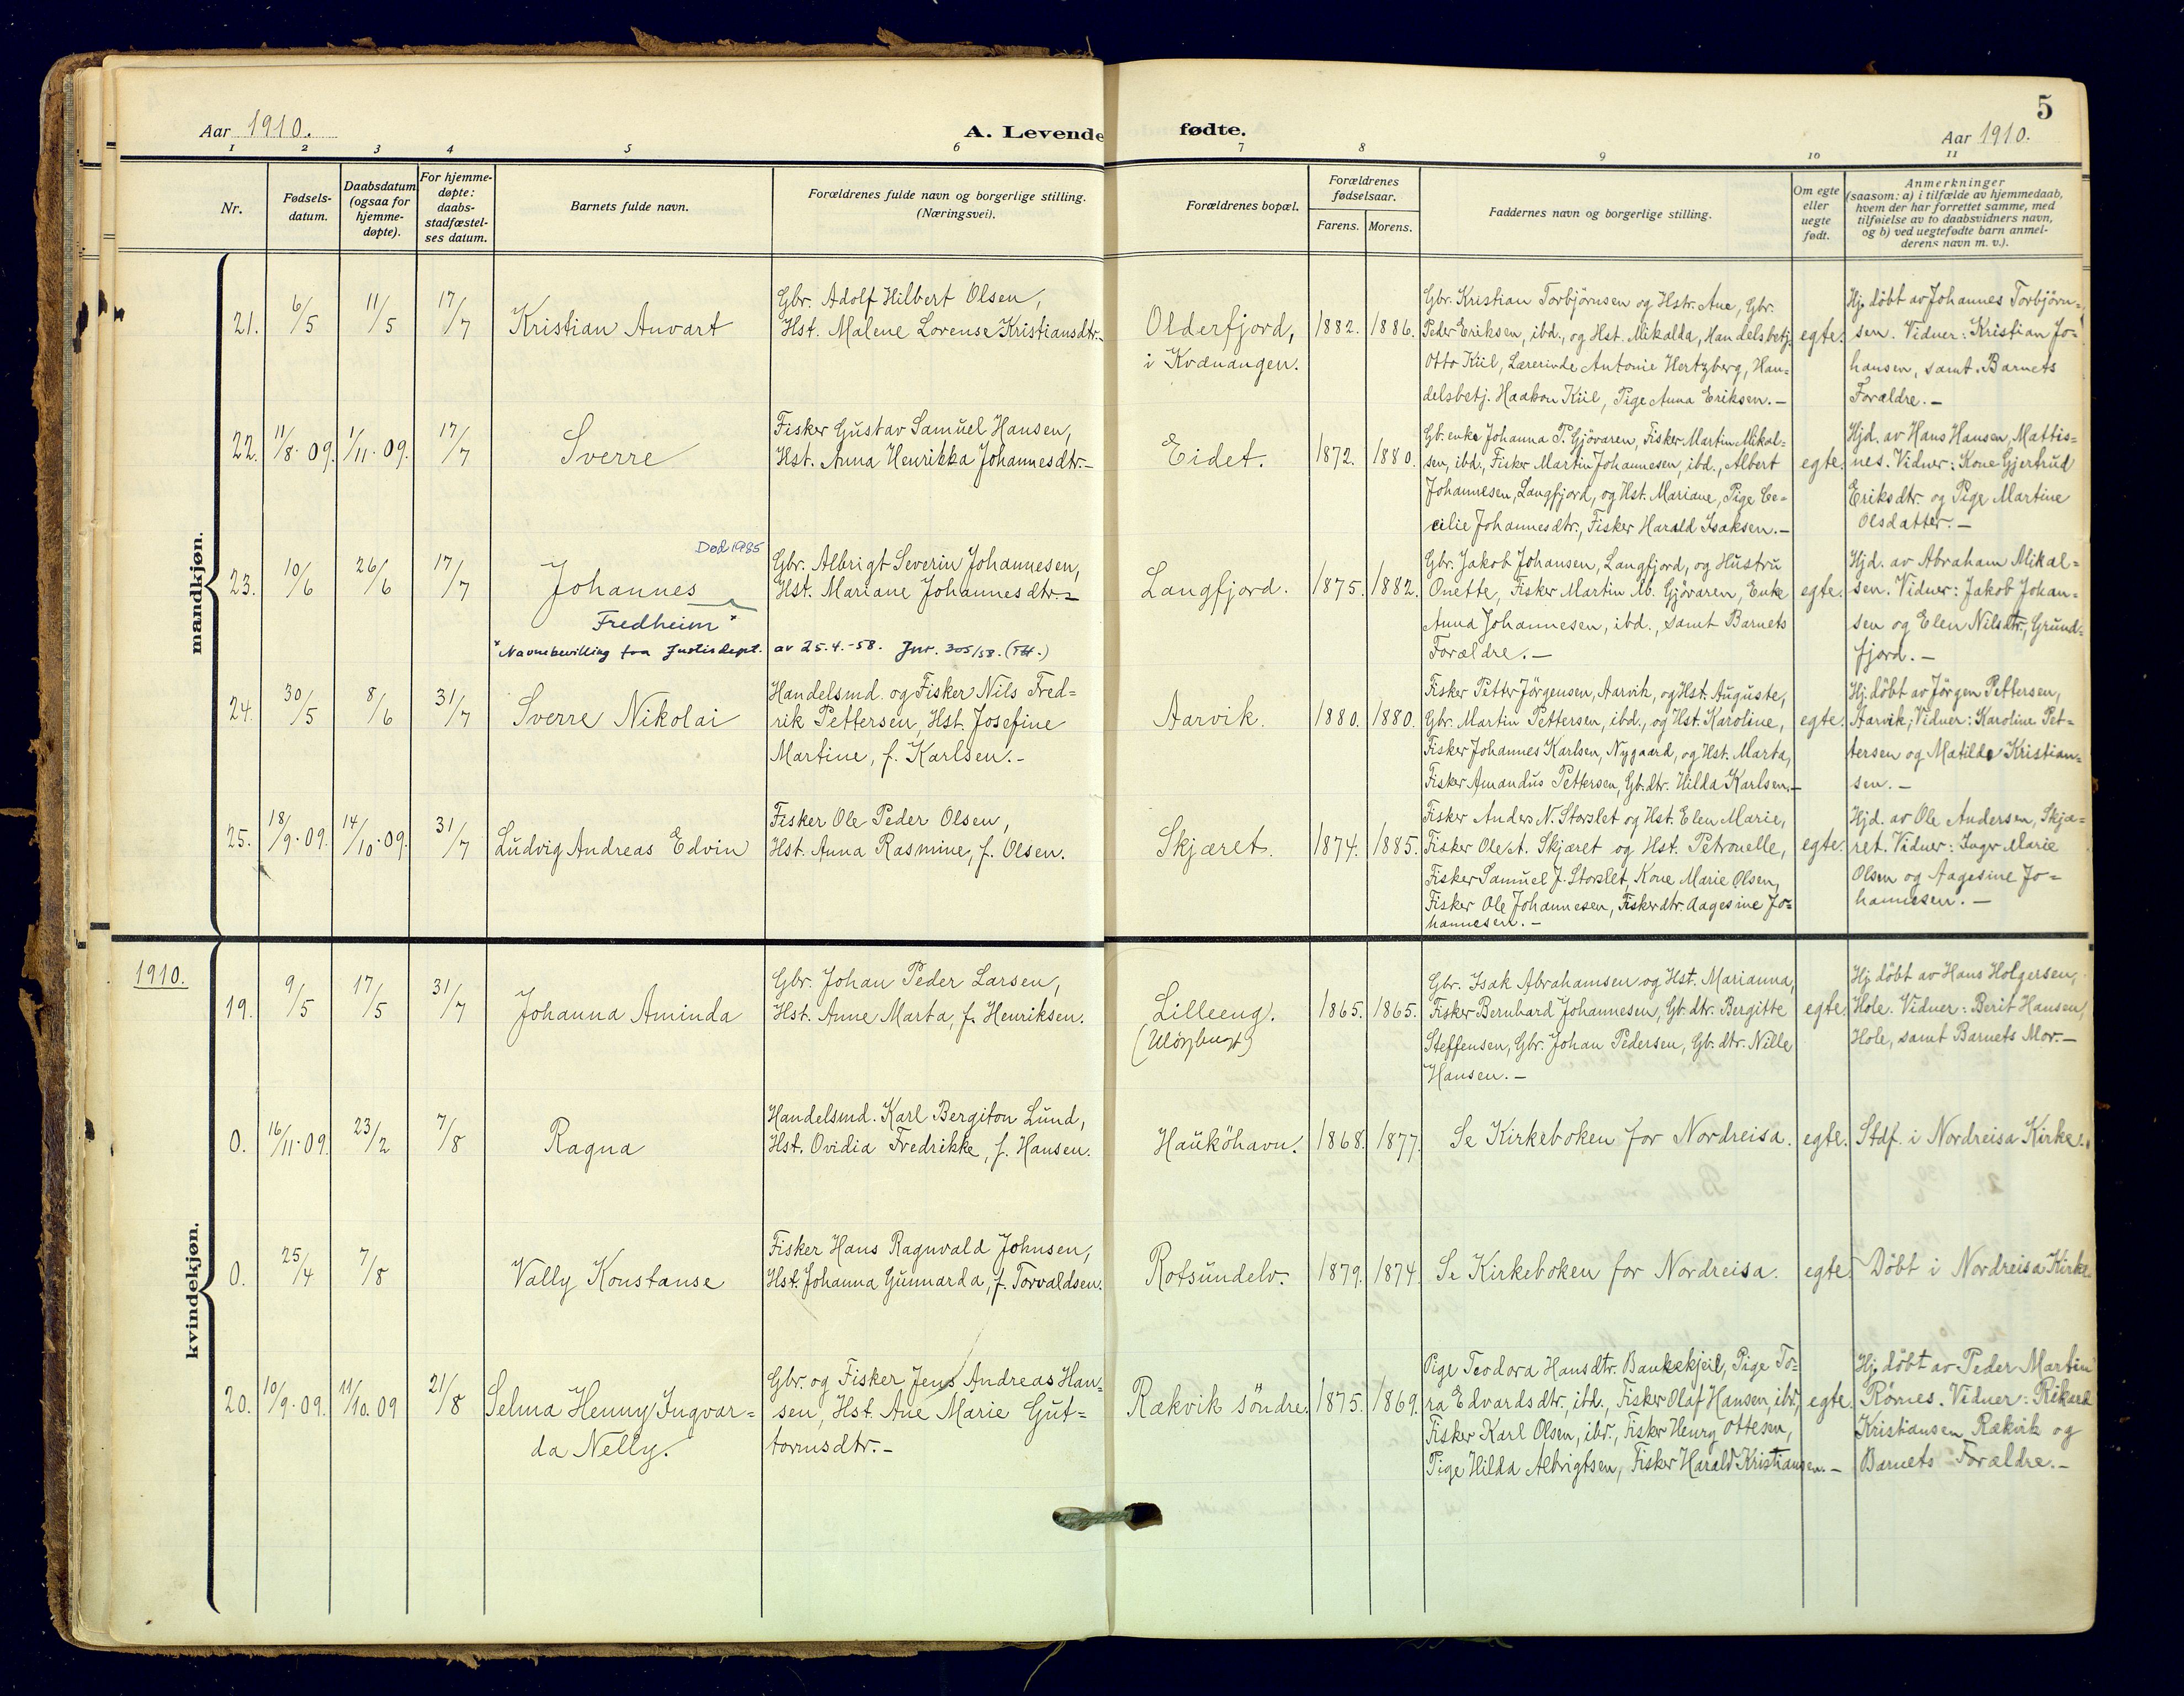 5
Aar 1910.
A. Levende fødte.
Aar 1910.
1 2 3 4 5 6 7 8 9 10 11
Nr.
Fødsels-
datum.
Daabsdatum
(ogsaa for
hjemme-
døpte).
For hjemme-
døpte:
daabs-
stadfæstel-
ses datum.
Barnets fulde navn.
Forældrenes fulde navn og borgerlige stilling.
(Næringsvei).
Forældrenes bopæl.
Forældrenes
fødselsaar.
Farens. Morens.
Faddernes navn og borgerlige stilling.
Om egte
eller
uegte
født.
Anmerkninger
(saasom: a) i tilfælde av hjemmedaab,
hvem der har forrettet samme, med
tilføielse av to daabsvidners navn,
og b) ved uegtefødte barn anmel-
derens navn m. v.).
mandkjøn.
21. 6/5 11/5 17/7
Kristian Anvart
Gbr. Adolf Hilbert Olsen,
Hst. Malene Lorense Kristiansdtr.-
Olderfjord,
i Kvænangen.
1882. 1886.
Gbr. Kristian Torbjörnsen og Hstr. Ane, Gbr.
Peder Eriksen, ibd., og Hst. Mikalda, Handelsbetj.
Otto Kiil, Lærerinde Antonie Hertzberg, Han-
delsbetj. Haakon Kiil, Pige Anna Eriksen.-
egte.
Hj. döbt av Johannes Torbjörn-
sen. Vidner: Kristian Jo-
hansen, samt Barnets
Forældre.-
22. 11/8.09. 1/11.09. 17/7
Sverre
Fisker Gustav Samuel Hansen,
Hst. Anna Henrikka Johannesdtr.-
Eidet.
1872. 1880.
Gb.enke Johanna P. Gjövaren, Fisker Martin Mikal-
sen, ibd., Fisker Martin Johannesen, ibd., Albert
Johannesen, Langfjord, og Hst. Mariane, Pige Ce-
cilie Johannesdtr., Fisker Harald Isaksen.-
egte.
Hjd. av Hans Hansen, Mattis-
nes. Vidner: Kone Gjertrud
Eriksdtr. og Pige Martine
Olsdatter.-
23. 10/6 26/6 17/7
Død 1985
Johannes
Fredheim*
*Navnebevilling fra Justisdept. av 25.4.-58. Jnr. 305/58.
Gbr. Albrigt Severin Johannesen,
Hst. Mariane Johannesdtr.-
Langfjord.
1875. 1882.
Gbr. Jakob Johansen, Langfjord, og Hustru
Onette, Fisker Martin M. Gjövaren, Enke
Anna Johannesen, ibd., samt Barnets
Forældre.-
egte.
Hjd. av Abraham Mikal-
sen. Vidner: Jakob Johan-
sen og Elen Nilsdtr., Grund-
fjord.-
24. 30/5 8/6 31/7
Sverre Nikolai
Handelsmd. og Fisker Nils Fred-
rik Pettersen, Hst. Josefine
Martine, f. Karlsen.-
Aarvik.
1880. 1880.
Fisker Petter Jörgensen, Aarvik, og Hst. Auguste,
Gbr. Martin Pettersen, ibd., og Hst. Karoline,
Fisker Johannes Karlsen, Nygaard, og Hst. Marta,
Fisker Amandus Pettersen, Gb.dtr. Hilda Karlsen.-
egte.
Hj. döbt av Jörgen Pettersen,
Aarvik; Vidner: Karoline Pet-
tersen og Matilde Kristian-
sen.-
25. 18/9.09. 14/10.09. 31/7
Ludvig Andreas Edvin
Fisker Ole Peder Olsen,
Hst. Anna Rasmine, f. Olsen.
Skjæret.
1874. 1885.
Fisker Anders N. Storslet og Hst. Elen Marie,
Fisker Ole A. Skjæret og Hst. Petronelle,
Fisker Samuel J. Storslet, Kone Marie Olsen,
Fisker Ole Johannesen, Fiskerdtr. Aagesine Jo-
hannesen.-
egte.
Hjd. av Ole Andersen, Skjæ-
ret. Vidner: Inger Marie
Olsen og Aagesine Jo-
hannesen.-
1910.
kvindekjøn.
19. 9/5 17/5 31/7
Johanna Aminda
Gbr. Johan Peder Larsen,
Hst. Anne Marta, f. Henriksen.
Lilleeng.
1865. 1865.
Gbr. Isak Abrahamsen og Hst. Marianna,
Fisker Bernhard Johannesen, Gb.dtr. Bergitte
Steffensen, Gbr. Johan Pedersen, Gb.dtr. Nille
Hansen.-
egte.
Hj. döbt av Hans Holgersen,
Hole. Vidner: Berit Hansen,
Hole, samt Barnets Mor.-
0. 16/11.09. 23/2 7/8
Ragna
Handelsmd. Karl Bergiton Lund,
Hst. Ovidia Fredrikke, f. Hansen.
Hauköhavn.
1868. 1877.
Se Kirkeboken for Nordreisa.
egte.
Stdf. i Nordreisa Kirke.
0. 25/4 7/8
Vally Konstanse
Fisker Hans Ragnvald Johnsen,
Hst. Johanna Gunnarda, f. Torvaldsen.
Rotsundelv.
1879. 1874.
Se Kirkeboken for Nordreisa.
egte.
Döbt i Nordreisa Kirke.
20. 10/9.09. 11/10.09 21/8
Selma Henny Ingvar-
da Nelly.
Gbr. og Fisker Jens Andreas Han-
sen, Hst. Ane Marie Gut-
tormsdtr.-
Rækvik söndre.
1875. 1869.
Pige Teodora Hansdtr. Bankekjeil, Pige To-
ra Edvardsdtr., ibd., Fisker Olaf Hansen, ibd.,
Fisker Karl Olsen, ibd., Fisker Henry Ottesen,
Pige Hilda Albrigtsen, Fisker Harald Kristiansen.-
egte.
Hj. döbt av Peder Martin
Rörnes. Vidner: Rikard
Kristiansen Rækvik og
Barnets Forældre.-